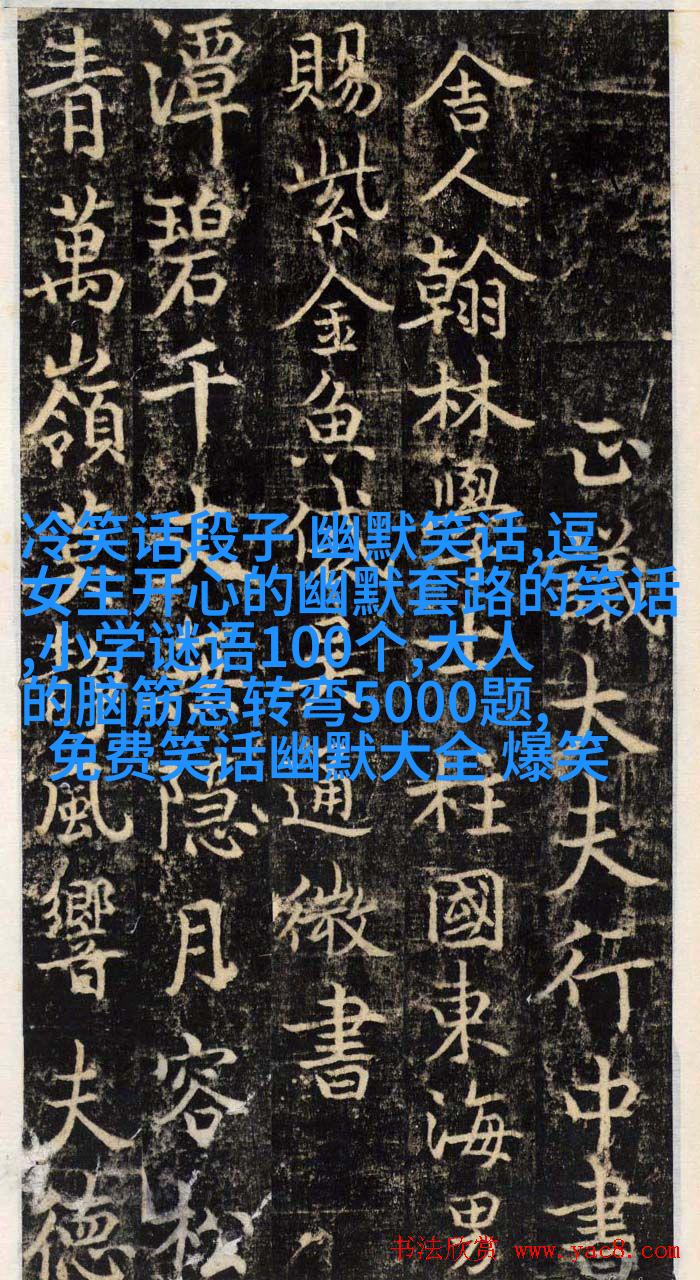 正議大夫行中書
舍人翰林學士柱國東海男
賜紫金魚袋通微書
潭碧千丈隐月容松
青萬嶺風響夫德
冷笑话段子 幽默笑话,逗
女生开心的幽默套路的笑话
,小学谜语100个,大人
的脑筋急转弯5000题,
免费笑话幽默大全 爆笑
书法欣赏 www.yac8.com